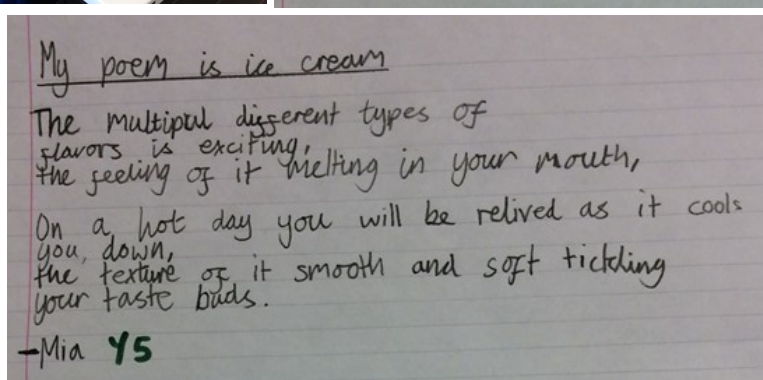 My poem is ice cream
The multipul different types of
flavors is exciting,
the feeling of it melting in your mouth,
On a hot day you will be relived as it cools
you down,
the texture of it smooth and soft tickling
your taste buds.
-Mia Y5